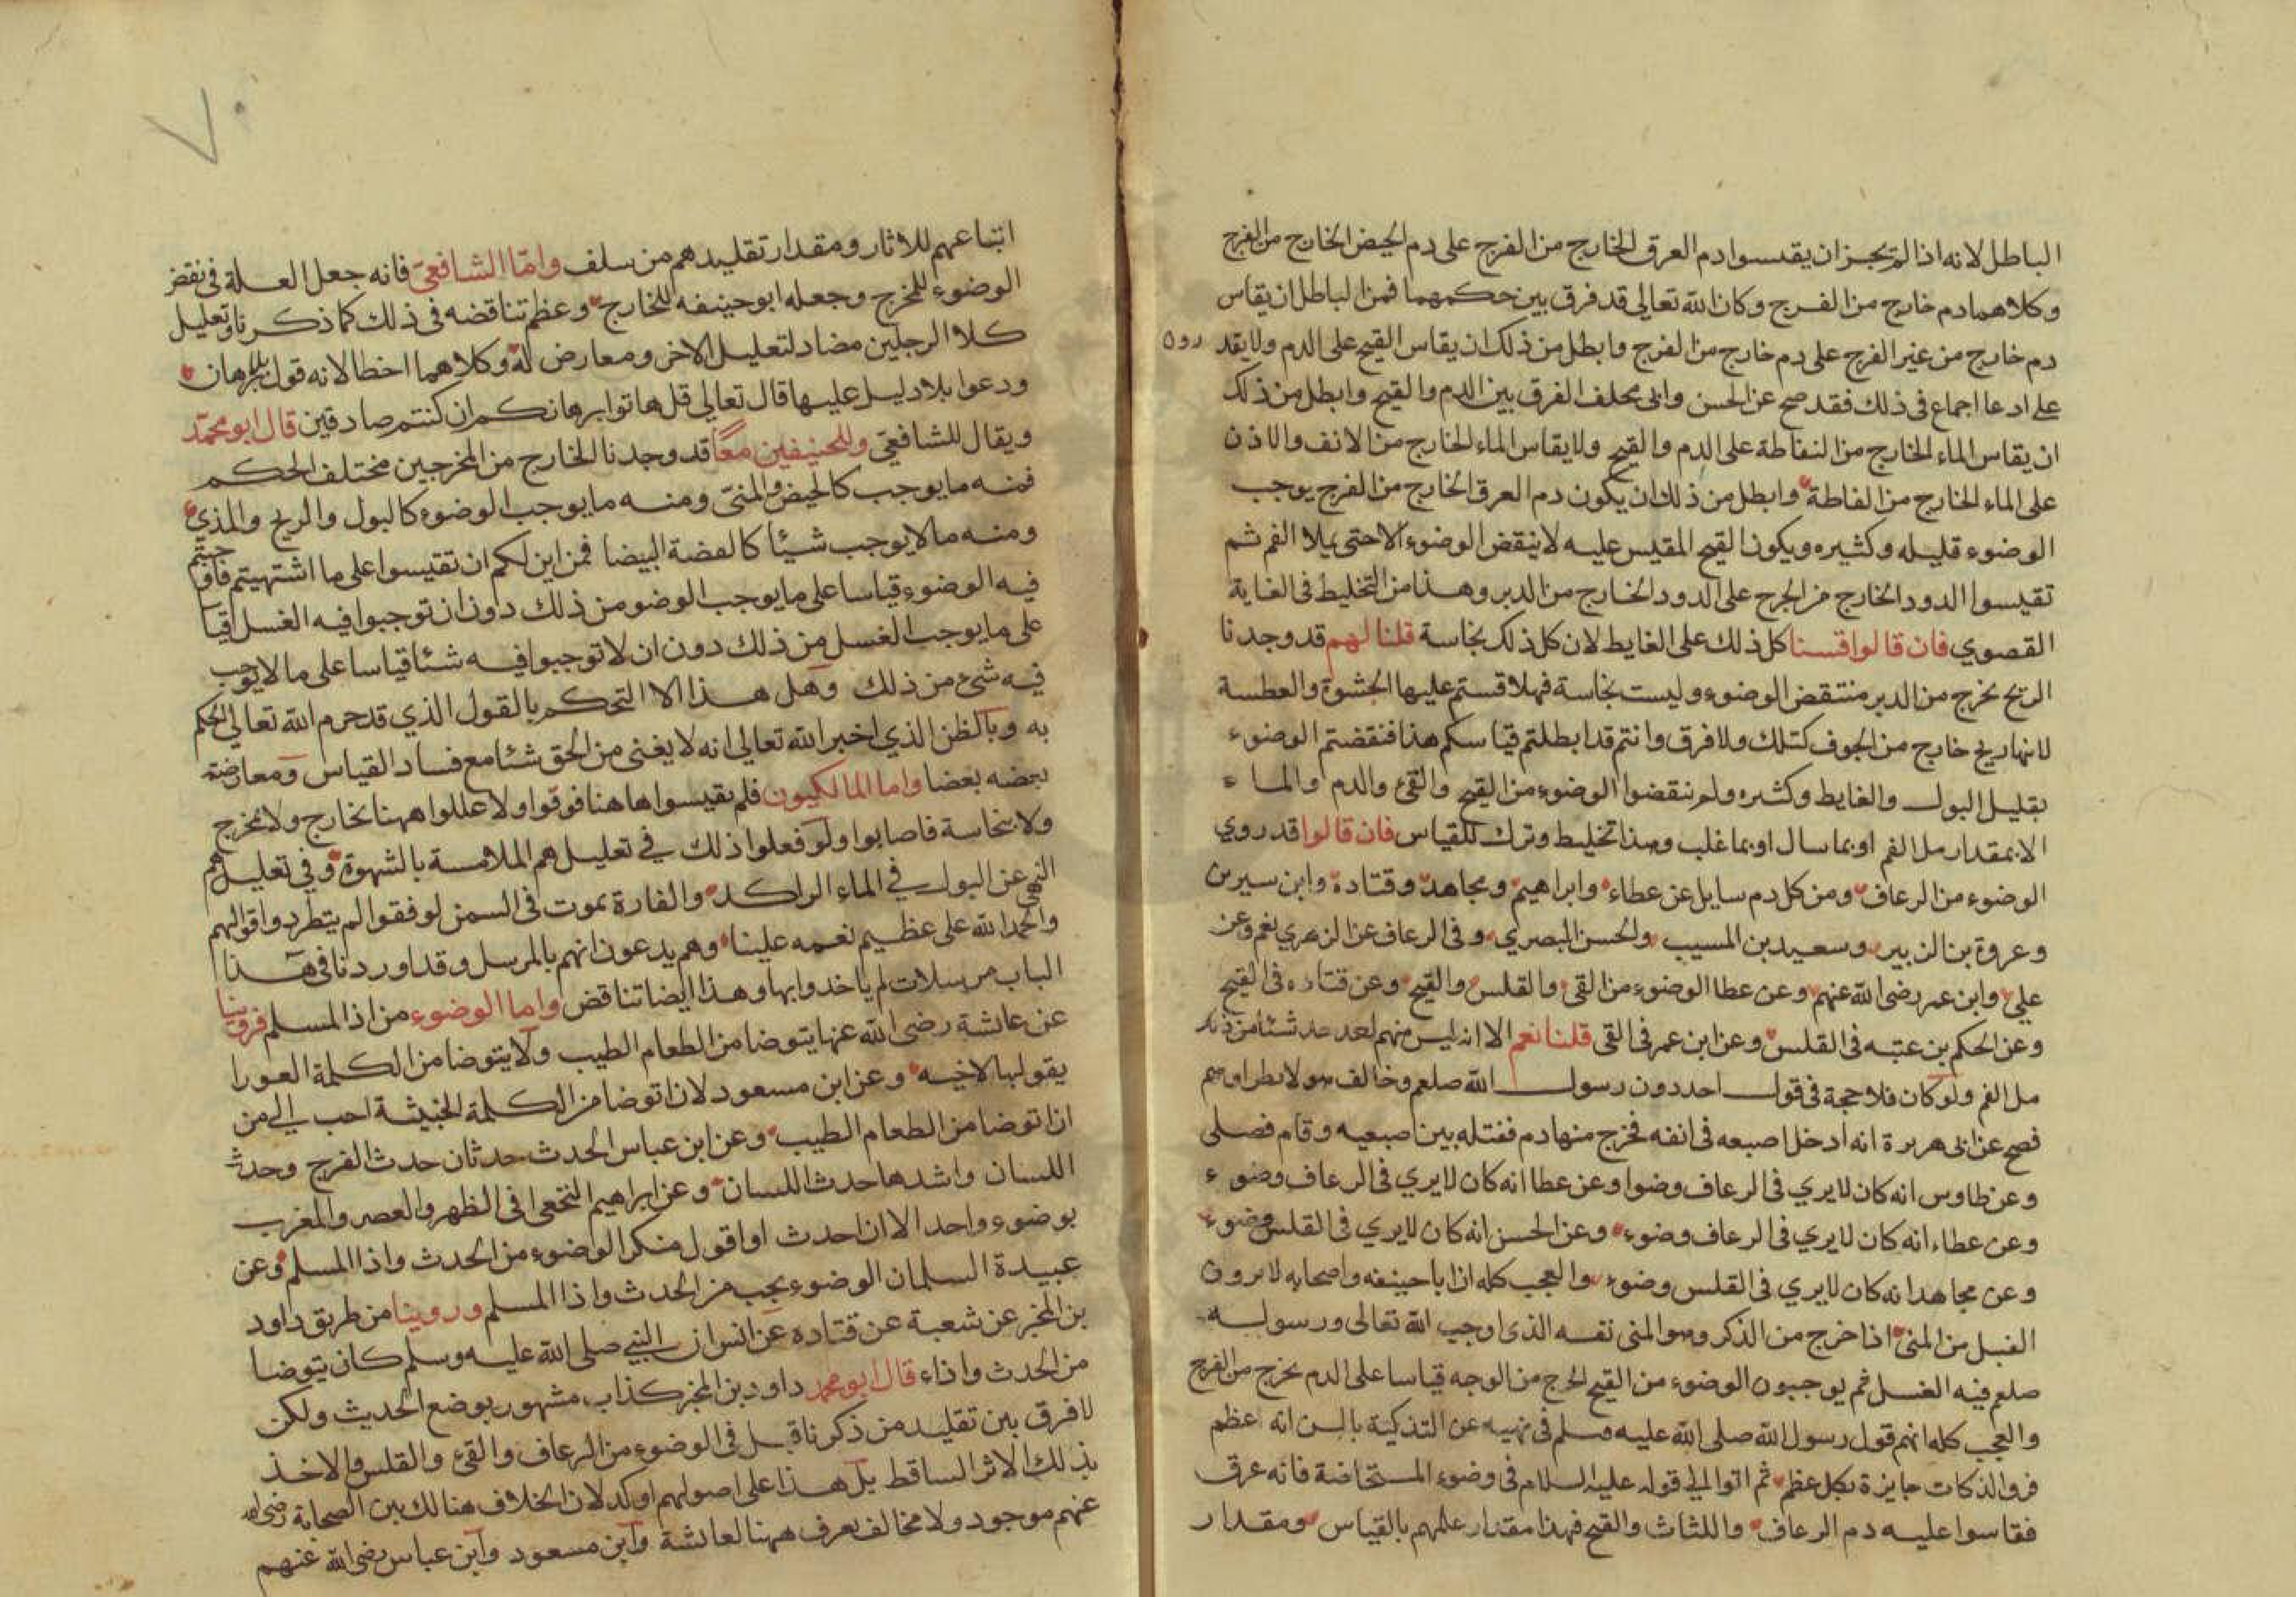 الباطل لانه اذا لم يجز ان يقيسوا دم العرق الخارج من الفرج على دم الحيض الخارج من الفرج
وكلاهما دم خارج من الفرج وكان الله تعالى قد فرق بين حكمهما فمن الباطل ان يقاس
دم خارج من غير الفرج على دم خارج من الفرج وابطل من ذلك ان يقاس القيح على الدم ولا يقد رون
على ادعا اجماع في ذلك فقد صح عن الحسن وابي مجلف الفرق بين الدم والقيح وابطل من ذلك
ان يقاس الماء الخارج من النفاطة على الدم والقيح ولا يقاس الماء الخارج من الانف والاذن
على الماء الخارج من الفاطة وابطل من ذلك ان يكون دم العرق الخارج من الفرج يوجب
الوضوء قليله وكثيره ويكون القيح المقيس عليه لا ينقض الوضوء الا حتى يملا الفم ثم
تقيسوا الدود الخارج من الجرح على الدود الخارج من الدبر وهذا من التخليط في الغاية
القصوي فان قالوا قسنا كل ذلك على الغايط لان كل ذلك نجاسة قلنا لهم قد وجدنا
الريح تخرج من الدبر فتنقض الوضوء وليست نجاسة فهلا قستم عليها الجشوة والعطسة
لانها ريح خارج من الجوف كتلك ولا فرق وانتم قد ابطلتم قياسكم هذا فنقضتم الوضوء
بقليل البول والغايط وكثيره ولم تنقضوا الوضوء من القيح والقئ والدم والماء
الا بمقدار مل الفم او بما سال او بما غلب وهذا تخليط وترك للقياس فان قالوا قد روي
الوضوء من الرعاف ومن كل دم سايل عن عطاء وابراهيم ومجاهد وقتادة وابن سيرين
وعروة بن الزبير وسعيد بن المسيب والحسن البصري وفي الرعاف عن الزهري نعم وعن
علي وابن عمر رضي الله عنهم وعن عطا الوضوء من القئ والقلس والقيح وعن قتاده في القيح
وعن الحكم بن عتبه في القلس وعن ابن عمر في القى قلنا نعم الا انه ليس منهم احد حد شئا من ذلك
مل الفم ولو كان فلا حجة في قول احد دون رسول الله صلعم وخالف هولا نظراوهم
فصح عن ابي هريرة انه ادخل اصبعه في انفه فخرج منها دم ففتله بين اصبعيه وقام فصلى
وعن طاوس انه كان لا يري في الرعاف وضوا وعن عطا انه كان لا يري في الرعاف وضوء
وعن عطاء انه كان لا يري في الرعاف وضوء وعن الحسن انه كان لا يري في القلس وضوء
وعن مجاهد انه كان لا يري في القلس وضوء والعجب كله ان ابا حنيفه واصحابه لا يرون
الغسل من المني اذا خرج من الذكر وهو المني نفسه الذي اوجب الله تعالى ورسوله
صلعم فيه الغسل ثم يوجبون الوضوء من القيح الخرج من الوجه قياسا على الدم يخرج من الفرج
والعجب كله انهم قول رسول الله صلى الله عليه وسلم في نهيه عن التذكية بالسن انه اعظم
فروا الذكات جايزة بكل عظم ثم اتوا الى قوله عليه السلام في وضوء المستحاضة فانه عرق
فقاسوا عليه دم الرعاف واللثاث والقيح فهذا مقدار علمهم بالقياس ومقدار
٧٠
اتباعهم للاثار ومقدار تقليدهم من سلف واما الشافعي فانه جعل العلة في نقض
الوضوء للمخرج وجعله ابو حنيفه للخارج وعظم تناقضه في ذلك كما ذكرنا وتعليل
كلا الرجلين مضاد لتعليل الاخر ومعارض له وكلاهما اخطا لانه قول بلا برهان
ودعوا بلا دليل عليها قال تعالى قل هاتوا برهانكم ان كنتم صادقين قال ابو محمد
ويقال للشافعي وللحنيفين معا قد وجدنا الخارج من المخرجين مختلف الحكم
فمنه ما يوجب كالحيض والمنى ومنه ما يوجب الوضوء كالبول والريح والمذي
ومنه ما لا يوجب شيئا كالفضة البيضا فمن اين لكم ان تقيسوا على ما اشتهيتم فاوجبتم
فيه الوضوء قياسا على ما يوجب الوضو من ذلك دون ان توجبوا فيه الغسل قيا
على ما يوجب الغسل من ذلك دون ان لا توجبوا فيه شئا قياسا على ما لا يوجب
فيه شئ من ذلك وهل هذا الا التحكم بالقول الذي قد حرم الله تعالى الحكم
به وبالظن الذي اخبر الله تعالى انه لا يغنى من الحق شئا مع فساد القياس ومعارضته
بعضه بعضا واما المالكيون فلم يقيسوا هاهنا فوقوا ولا عللوا ههنا بخارج ولا بمخرج
ولا بنجاسة فاصابوا ولو فعلوا ذلك في تعليلهم الملامسة بالشهوة وفي تعليلهم
النهي عن البول في الماء الراكد والفارة تموت في السمن لوفقوا لم يتطرد واقوالهم
والحمد لله على عظيم نعمه علينا وهم يدعون انهم بالمرسل وقد اوردنا في هذا
الباب مرسلات لم ياخذوا بها وهذا ايضا تناقض واما الوضوء من اذا المسلم فروينا
عن عائشة رضي الله عنها يتوضا من الطعام الطيب ولا يتوضا من الكلمة العورا
يقولها لاخيه وعن ابن مسعود لان اتوضا من الكلمة الخبيثة احب الي من
ان اتوضا من الطعام الطيب وعن ابن عباس الحدث حدثان حدث الفرج وحدث
اللسان واشدها حدث اللسان وعن ابراهيم النخعي في الظهر والعصر والمغرب
بوضوء واحد الا ان احدث او اقول منكرا الوضوء من الحدث واذا المسلم وعن
عبيدة السلمان الوضوء يجب من الحدث واذا المسلم وروينا من طريق داود
بن المخبر عن شعبة عن قتاده عن انس ان النبي صلى الله عليه وسلم كان يتوضا
من الحدث واذاء قال ابو محمد داود بن المخبر كذاب مشهور بوضع الحديث ولكن
لا فرق بين تقليد من ذكرنا قبل في الوضوء من الرعاف والقئ والقلس والاخذ
بذلك الاثر الساقط بل هذا على اصولهم اوكد لان الخلاف هنالك بين الصحابة رضي الله
عنهم موجود ولا مخالف يعرف ههنا لعائشة وابن مسعود وابن عباس رضي الله عنهم